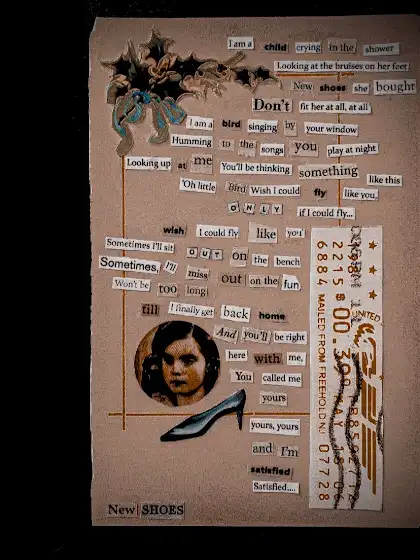 I am a child crying in the shower
Looking at the bruises on her feet
New shoes she bought
Don't fit her at all, at all
I am a bird singing by your window
Humming to the songs you play at night
Looking up at me You'll be thinking something like this
'Oh little Bird Wish I could fly like you,
ONLY if I could fly...
wish I could fly like you'
Sometimes I'll sit OUT on the bench
Sometimes, I'll miss out on the fun,
Won't be too long
till I finally get back home
And you'll be right
here with me,
You called me
yours
yours, yours
and I'm
satisfied
Satisfied....
New SHOES
UNITED
2215 $00.39
6884 MAILED FROM FREEHOLD NJ 07728